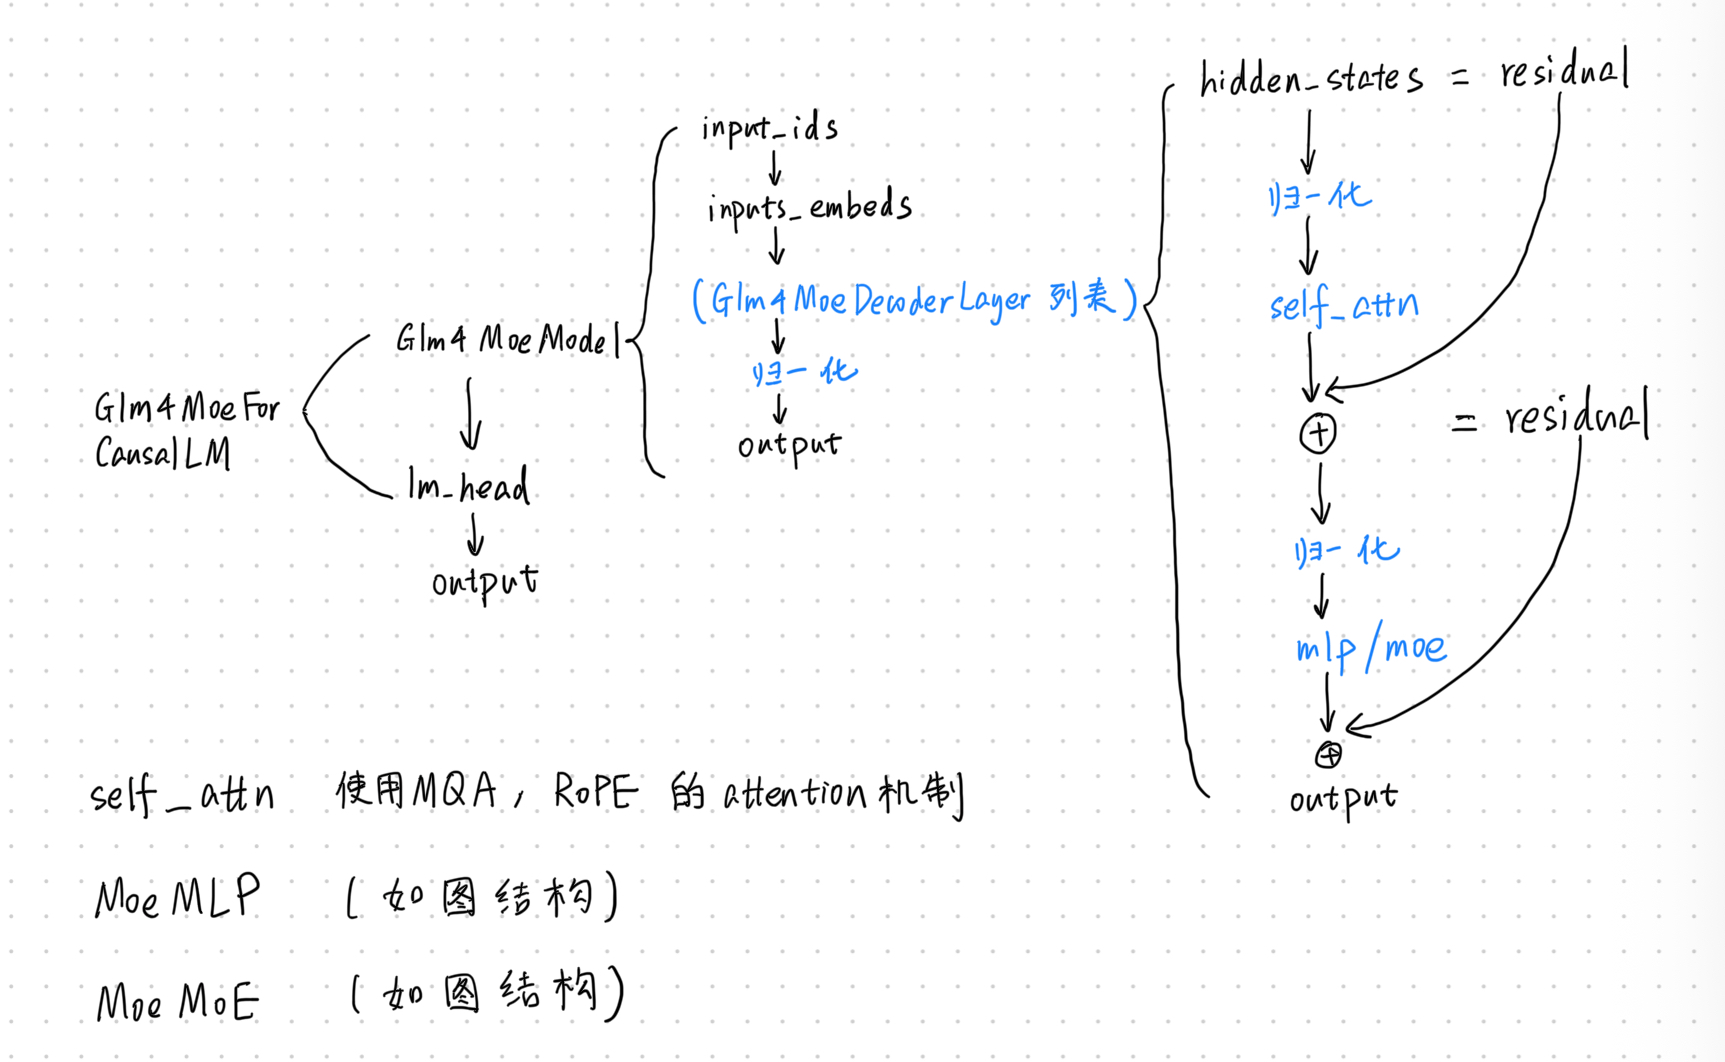 Glm4MoeFor
CausalLM
Glm4MoeModel
lm_head
output
input_ids
inputs_embeds
(Glm4MoeDecoderLayer 列表)
归一化
output
hidden_states = residual
归一化
self_attn
+
= residual
归一化
mlp/moe
+
output
self_attn 使用MQA, RoPE 的 attention 机制
MoeMLP (如图结构)
MoeMoE (如图结构)